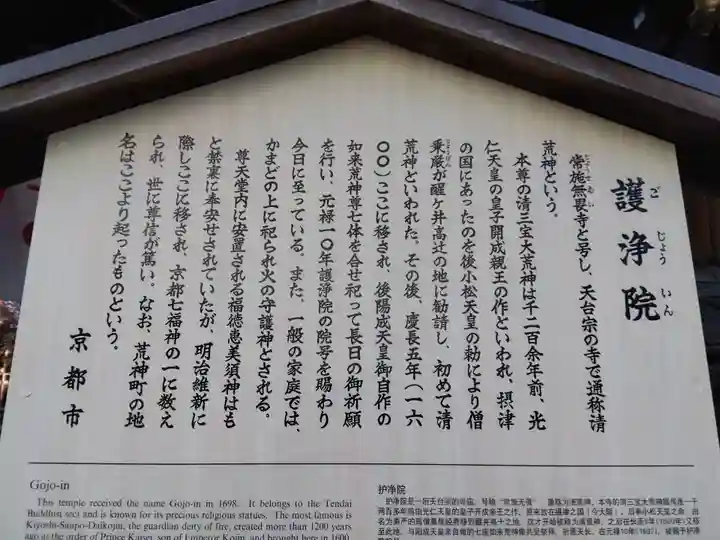 護浄院
ごじょういん
常施無畏寺と号し、天台宗の寺で通称清
荒神という。
本尊の清三宝大荒神は千二百余年前、光
仁天皇の皇子開成親王の作といわれ、摂津
の国にあったのを後小松天皇の勅により僧
乗厳が醒ヶ井高辻の地に勧請し、初めて清
荒神といわれた。その後、慶長五年（一六
〇〇）ここに移され、後陽成天皇御自作の
如来荒神尊七体を合せ祀って長日の御祈願
を行い、元禄一〇年護浄院の院号を賜わり
今日に至っている。また、一般の家庭では、
かまどの上に祀られ火の守護神とされる。
尊天堂内に安置される福徳恵美須神はも
と禁裏に奉安せされていたが、明治維新に
際しここに移され、京都七福神の一に数え
られ、世に尊信が篤い。なお、荒神町の地
名はここより起ったものという。
京都市
Gojo-in
This temple received the name Gojo-in in 1698. It belongs to the Tendai
Buddhist sect and is known for its precious religious statues. The most famous is
Kiyoshi-Sanpo-Daikojin, the guardian deity of fire, created more than 1200 years
ago at the order of Prince Kaisei, son of Emperor Konin, and brought here in 1600
护净院
护净院是一所天台宗的寺庙，号称